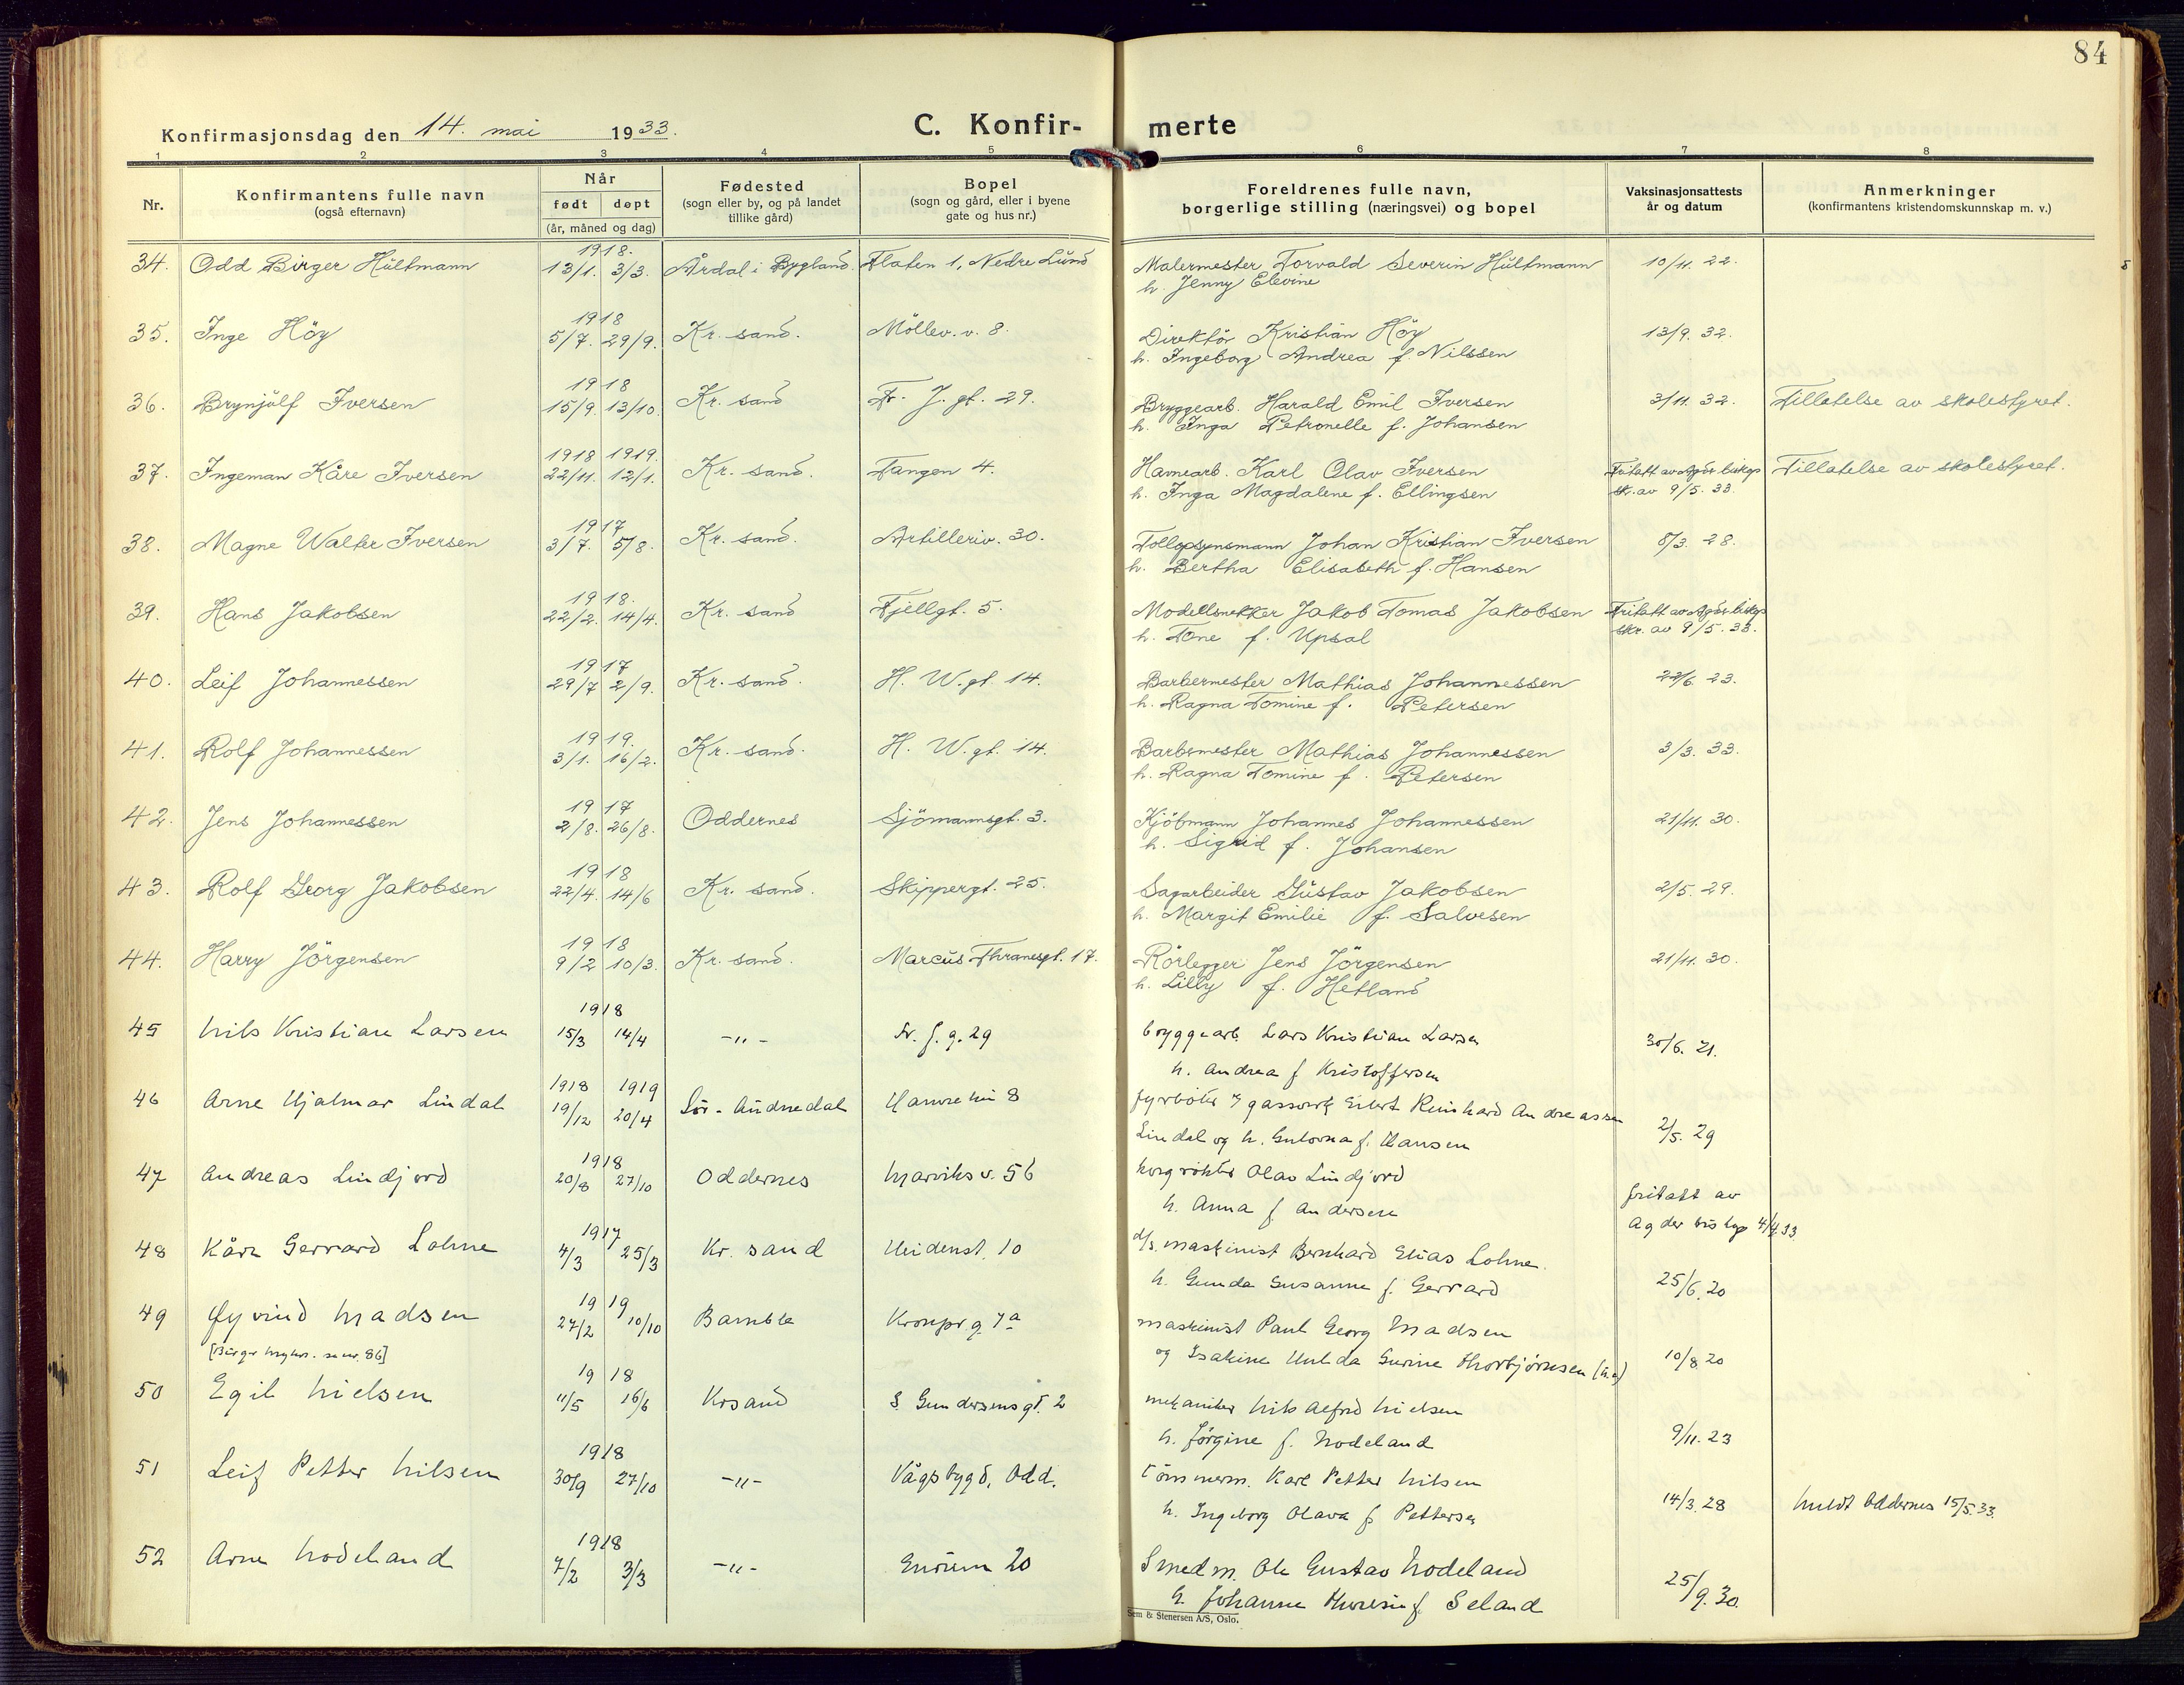 84
Konfirmasjonsdag den 14. mai 1933.
C. Konfir- merte
1 2 3 4 5 6 7 8
Nr.
Konfirmantens fulle navn
(også efternavn)
Når
født døpt
(år, måned og dag)
Fødested
(sogn eller by, og på landet
tillike gård)
Bopel
(sogn og gård, eller i byene
gate og hus nr.)
Foreldrenes fulle navn,
borgerlige stilling (næringsvei) og bopel
Vaksinasjonsattests
år og datum
Anmerkninger
(konfirmantens kristendomskunnskap m. v.)
1918.
34. Odd Birger Hültmann 13/1. 3/3. Årdal i Bygland. Flaten 1, Nedre Lund Malermester Torvald Severin Hültmann 10/11. 22.
h. Jenny Elevine
1918
35. Inge Höy 5/7. 29/9. Kr. sand. Möllev. v. 8. Direktör Kristian Höy 13/9. 32.
h. Ingeborg Andrea f. Nilssen
1918
36. Brynjulf Iversen 15/9. 13/10. Kr. sand Fr. J. gt. 29. Bryggearb. Harald Emil Iversen 3/11. 32. Tillatelse av skolestyret.
h. Inga Petronelle f. Johansen
1918 1919.
37. Ingeman Kåre Iversen 22/11. 12/1. Kr. sand. Tangen 4. Havnearb. Karl Olav Iversen Fritatt av Agder biskop Tillatelse av skolestyret.
h. Inga Magdalene f. Ellingsen skr. av 9/5. 33.
1917
38. Magne Walter Iversen 3/7. 5/8. Kr. sand. Artilleriv. 30. Tollopsynsmann Johan Kristian Iversen 8/3. 28.
h. Bertha Elisabeth f. Hansen
1918.
39. Hans Jakobsen 22/2. 14/4. Kr. sand Fjellgt. 5. Modellsnekker Jakob Tomas Jakobsen Fritatt av Agder biskop
h. Tone f. Upsal skr. av 9/5. 33.
1917
40. Leif Johannessen 29/7 2/9. Kr. sand. H. W. gt. 14. Barbermester Mathias Johannessen 22/6. 23.
h. Ragna Tomine f. Petersen
1919.
41. Rolf Johannessen 3/1. 16/2. Kr. sand. H. W. gt. 14. Barbermester Mathias Johannessen 3/3. 33.
h. Ragna Tomine f. Petersen
1917
42. Jens Johannessen 2/8. 26/8. Oddernes Sjömannsgt. 3. Kjöbmann Johannes Johannessen 21/11. 30.
h. Sigrid f. Johansen
1918
43. Rolf Georg Jakobsen 22/4. 14/6 Kr. sand. Skippergt. 25. Sagarbeider Gustav Jakobsen 2/5. 29.
h. Margit Emilie f. Salvesen
1918
44. Harry Jörgensen 9/2 10/3. Kr. sand. Marcus Thranesgt. 17. Rörlegger Jens Jörgensen 21/11. 30.
h. Lilly f. Hetland
1918
45 Nils Kristian Larsen 15/3 14/4 -"- Fr. J. g. 29 bryggearb Lars Kristian Larsen 30/6. 21.
h. Andrea f Kristoffersen
1918 1919
46 Arne Hjalmar Lindal 19/12 20/4 Sör-Audnedal 8 fyrböter Eilert Reinhard Andreassen 2/5. 29
Lindal og h. f. Hansen
1918
47 Andreas Lindjord 20/8 27/10 Oddernes Marviksv. 56 Olav Lindjord fritatt av
h. Anna f. Andersen Agder biskop 4/4 33
1917
48 Kåre Gerrard Lohne 4/3 25/3 Kr. sand Heidenst. 10 d/s. maskinist Bernhard Elias Lohne.
h. Gunda Susanne f. Gerrard 25/6. 20
1919
49 Øyvind Madsen 27/2 10/10 Bamble Kronpr. g 7a maskinist Paul Georg Madsen
[Birger se nr. 86] og Isakine Hulda Gurine Thorbjørnsen 10/8 20
1918
50 Egil Nielsen 11/5 16/6 Krsand S Gundersensgt. 2 mekaniker Nils Alfred Nielsen
h. Jörgine f. Nodeland 9/11. 23
1918
51 Leif Petter Nilsen 30/9 27/10 -"- Vågsbygd, Odd. Tömmerm. Karl Petter Nilsen
h. Ingeborg Olava f Pettersen 14/3. 28 meldt Oddernes 15/5. 33.
1918
52 Arne Nodeland 7/2 3/3 -"- Enrum 20 Smedm. Ole Gustav Nodeland
h. Johanne Theresie f. Seland 25/9. 30.
Sem & Stenersen A/S, Oslo.